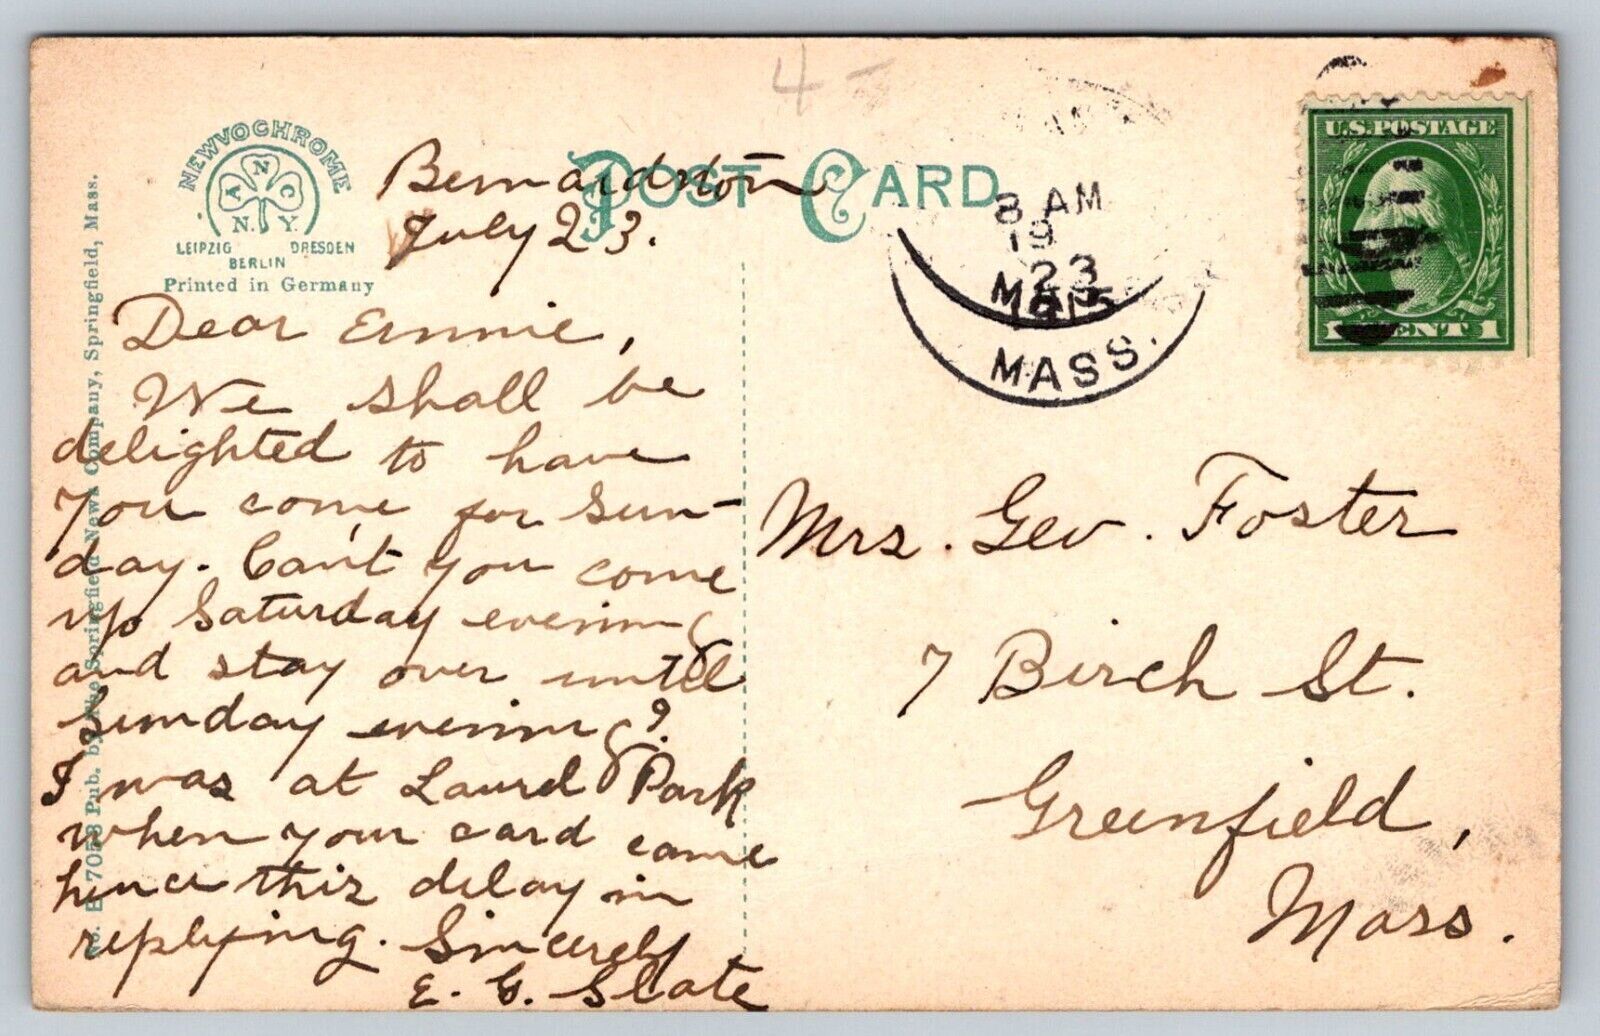 4 -
NEWVOCHROME
A N C
N. Y.
LEIPZIG DRESDEN
BERLIN
Printed in Germany
POST CARD
No. E 7058 Pub. by The Springfield News Company, Springfield, Mass.
8 AM
19
23
MASS.
U.S. POSTAGE
1 CENT 1
Bernardston
July 23.
Dear Annie,
We shall be
delighted to have
you come for Sun-
day. Can't you come
up Saturday evening
and stay over until
Sunday evening?
I was at Laurel Park
when your card came
hence this delay in
replying. Sincerely
E. G. Slate
Mrs. Geo. Foster
7 Birch St.
Greenfield,
Mass.